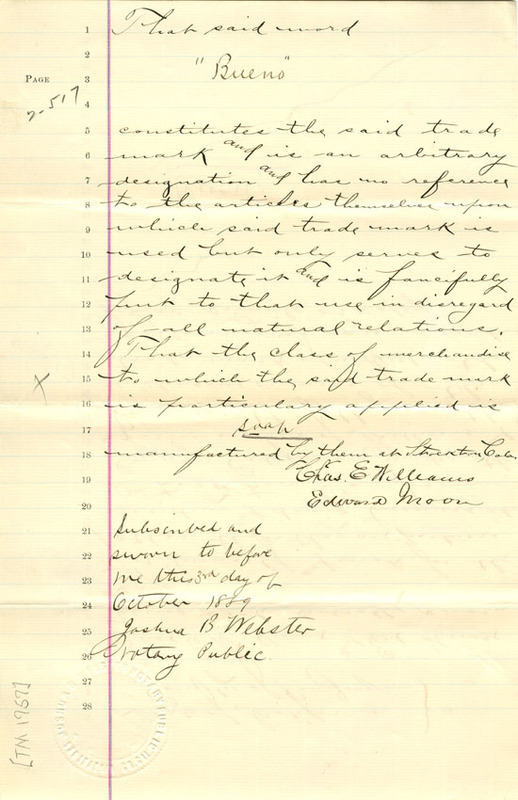 1 That said word
2
PAGE 3 "Bueno"
4
2-517
5 constitutes the said trade
6 mark and is an arbitrary
7 designation and has no reference
8 to the articles themselves upon
9 which said trade mark is
10 used but only serves to
11 designate it and is fancifully
12 put to that use in disregard
13 of all natural relations.
14 That the class of merchandise
15 to which the said trade mark
x
16 is particulary applied is
17 soap
18 manufactured by them at Stockton Cala.
19 Chas. E Williams
20 Edward Moon
21 Subscribed and
22 sworn to before
23 me this 3rd day of
24 October 1889
25 Joshua B Webster
26 Notary Public.
27
28
[TM 1757]